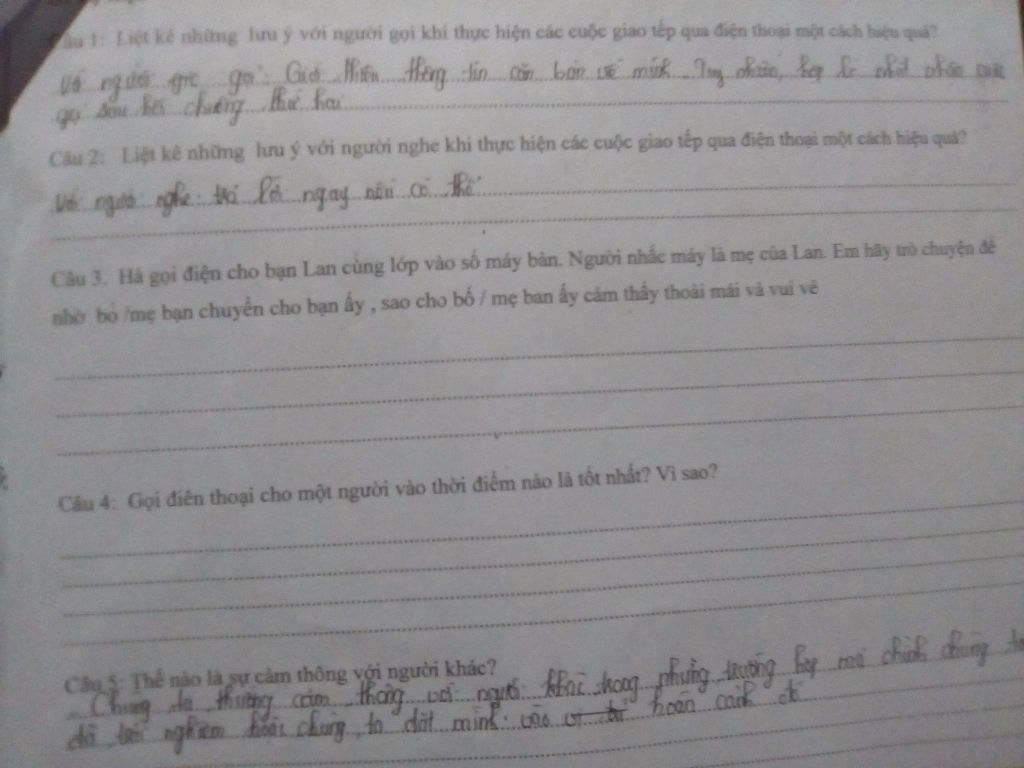 Câu 1: Liệt kê những lưu ý với người gọi khi thực hiện các cuộc giao tếp qua điện thoại một cách hiệu quả?
Với người gọi: Giới thiệu thông tin căn bản về mình. Tuy nhiên, hợp lí nhất nhấn cuộc
gọi sau hồi chuông thứ hai
Câu 2: Liệt kê những lưu ý với người nghe khi thực hiện các cuộc giao tếp qua điện thoại một cách hiệu quả?
Với người nghe: trả lời ngay nếu có thể
Câu 3. Hà gọi điện cho bạn Lan cùng lớp vào số máy bàn. Người nhấc máy là mẹ của Lan. Em hãy trò chuyện để
nhờ bố /mẹ bạn chuyển cho bạn ấy , sao cho bố / mẹ ban ấy cảm thấy thoải mái và vui vẻ
Câu 4: Gọi điên thoại cho một người vào thời điểm nào là tốt nhất? Vì sao?
Câu 5: Thế nào là sự cảm thông với người khác?
Chúng ta thường cảm thông với người khác trong những trường hợp mà chính chúng ta
đã trải nghiệm hoặc chúng ta đặt mình vào hoàn cảnh đó